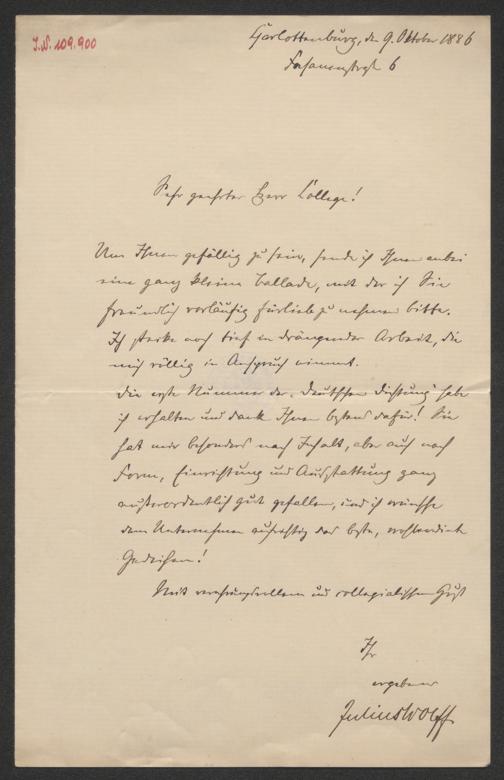 I.N. 109.900
Charlottenburg, den 9. Oktober 1886
Fasanenstraße 6
Sehr geehrter Herr College!
Um Ihnen gefällig zu sein, sende ich Ihnen anbei
eine ganz kleine Ballade, mit der ich Sie
freundlich vorläufig fürlieb zu nehmen bitte.
Ich stecke noch tief in drängender Arbeit, die
mich völlig in Anspruch nimmt.
Die erste Nummer der „Deutschen Dichtung" habe
ich erhalten und danke Ihnen bestens dafür! Sie
hat mir besonders nach Inhalt, aber auch nach
Form, Einrichtung und Ausstattung ganz
außerordentlich gut gefallen, und ich wünsche
dem Unternehmen aufrichtig das beste, wohlverdiente
Gedeihen!
Mit verehrungsvollem und collegialischem Gruß
Ihr
ergebener
Julius Wolff